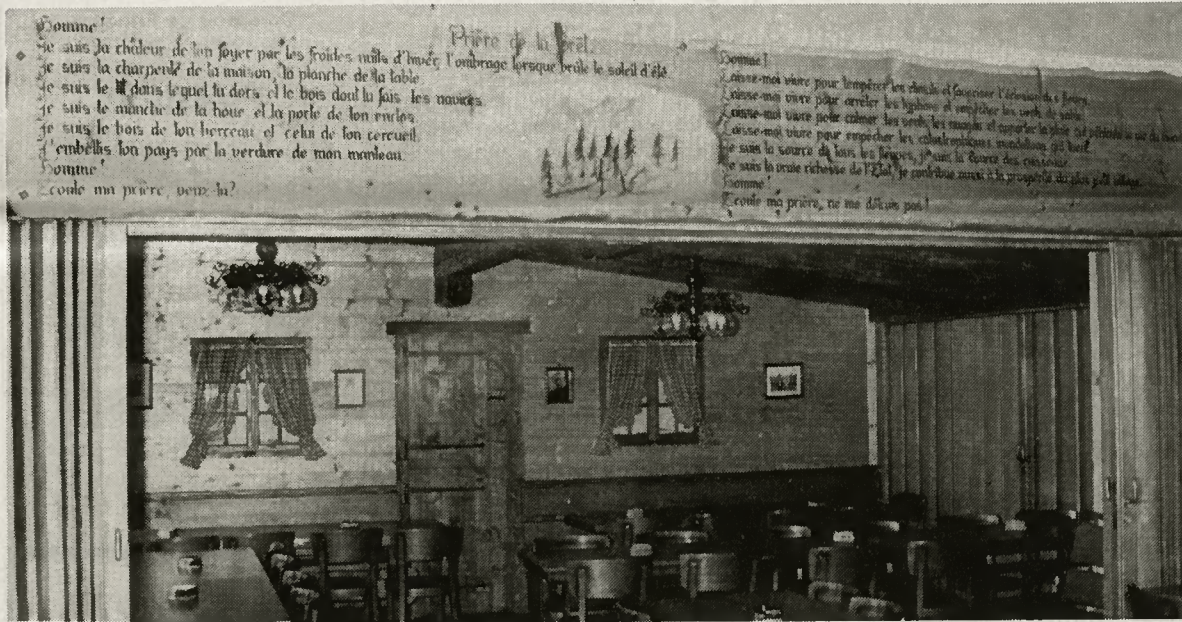 Prière de la forêt.
Homme!
Je suis la chaleur de ton foyer par les froides nuits d'hiver, l'ombrage lorsque brûle le soleil d'été.
Je suis la charpente de la maison, la planche de la table.
Je suis le lit dans lequel tu dors et le bois dont tu fais les navires.
Je suis le manche de ta houe et la porte de ton enclos.
Je suis le bois de ton berceau et celui de ton cercueil.
J'embellis ton pays par la verdure de mon manteau.
Homme!
Ecoute ma prière, veux-tu?
Homme!
Laisse-moi vivre pour tempérer les climats et favoriser l'éclosion des fleurs.
Laisse-moi vivre pour arrêter les typhons et empêcher les vents de sable.
Laisse-moi vivre pour calmer les vents, les nuages et apporter la pluie
Laisse-moi vivre pour empêcher les catastrophiques inondations qui tuent.
Je suis la source de tous les fleuves, je suis la source des ruisseaux.
Je suis la vraie richesse de l'Etat, je contribue aussi à la prospérité du plus petit village.
Homme!
Ecoute ma prière, ne me détruis pas!